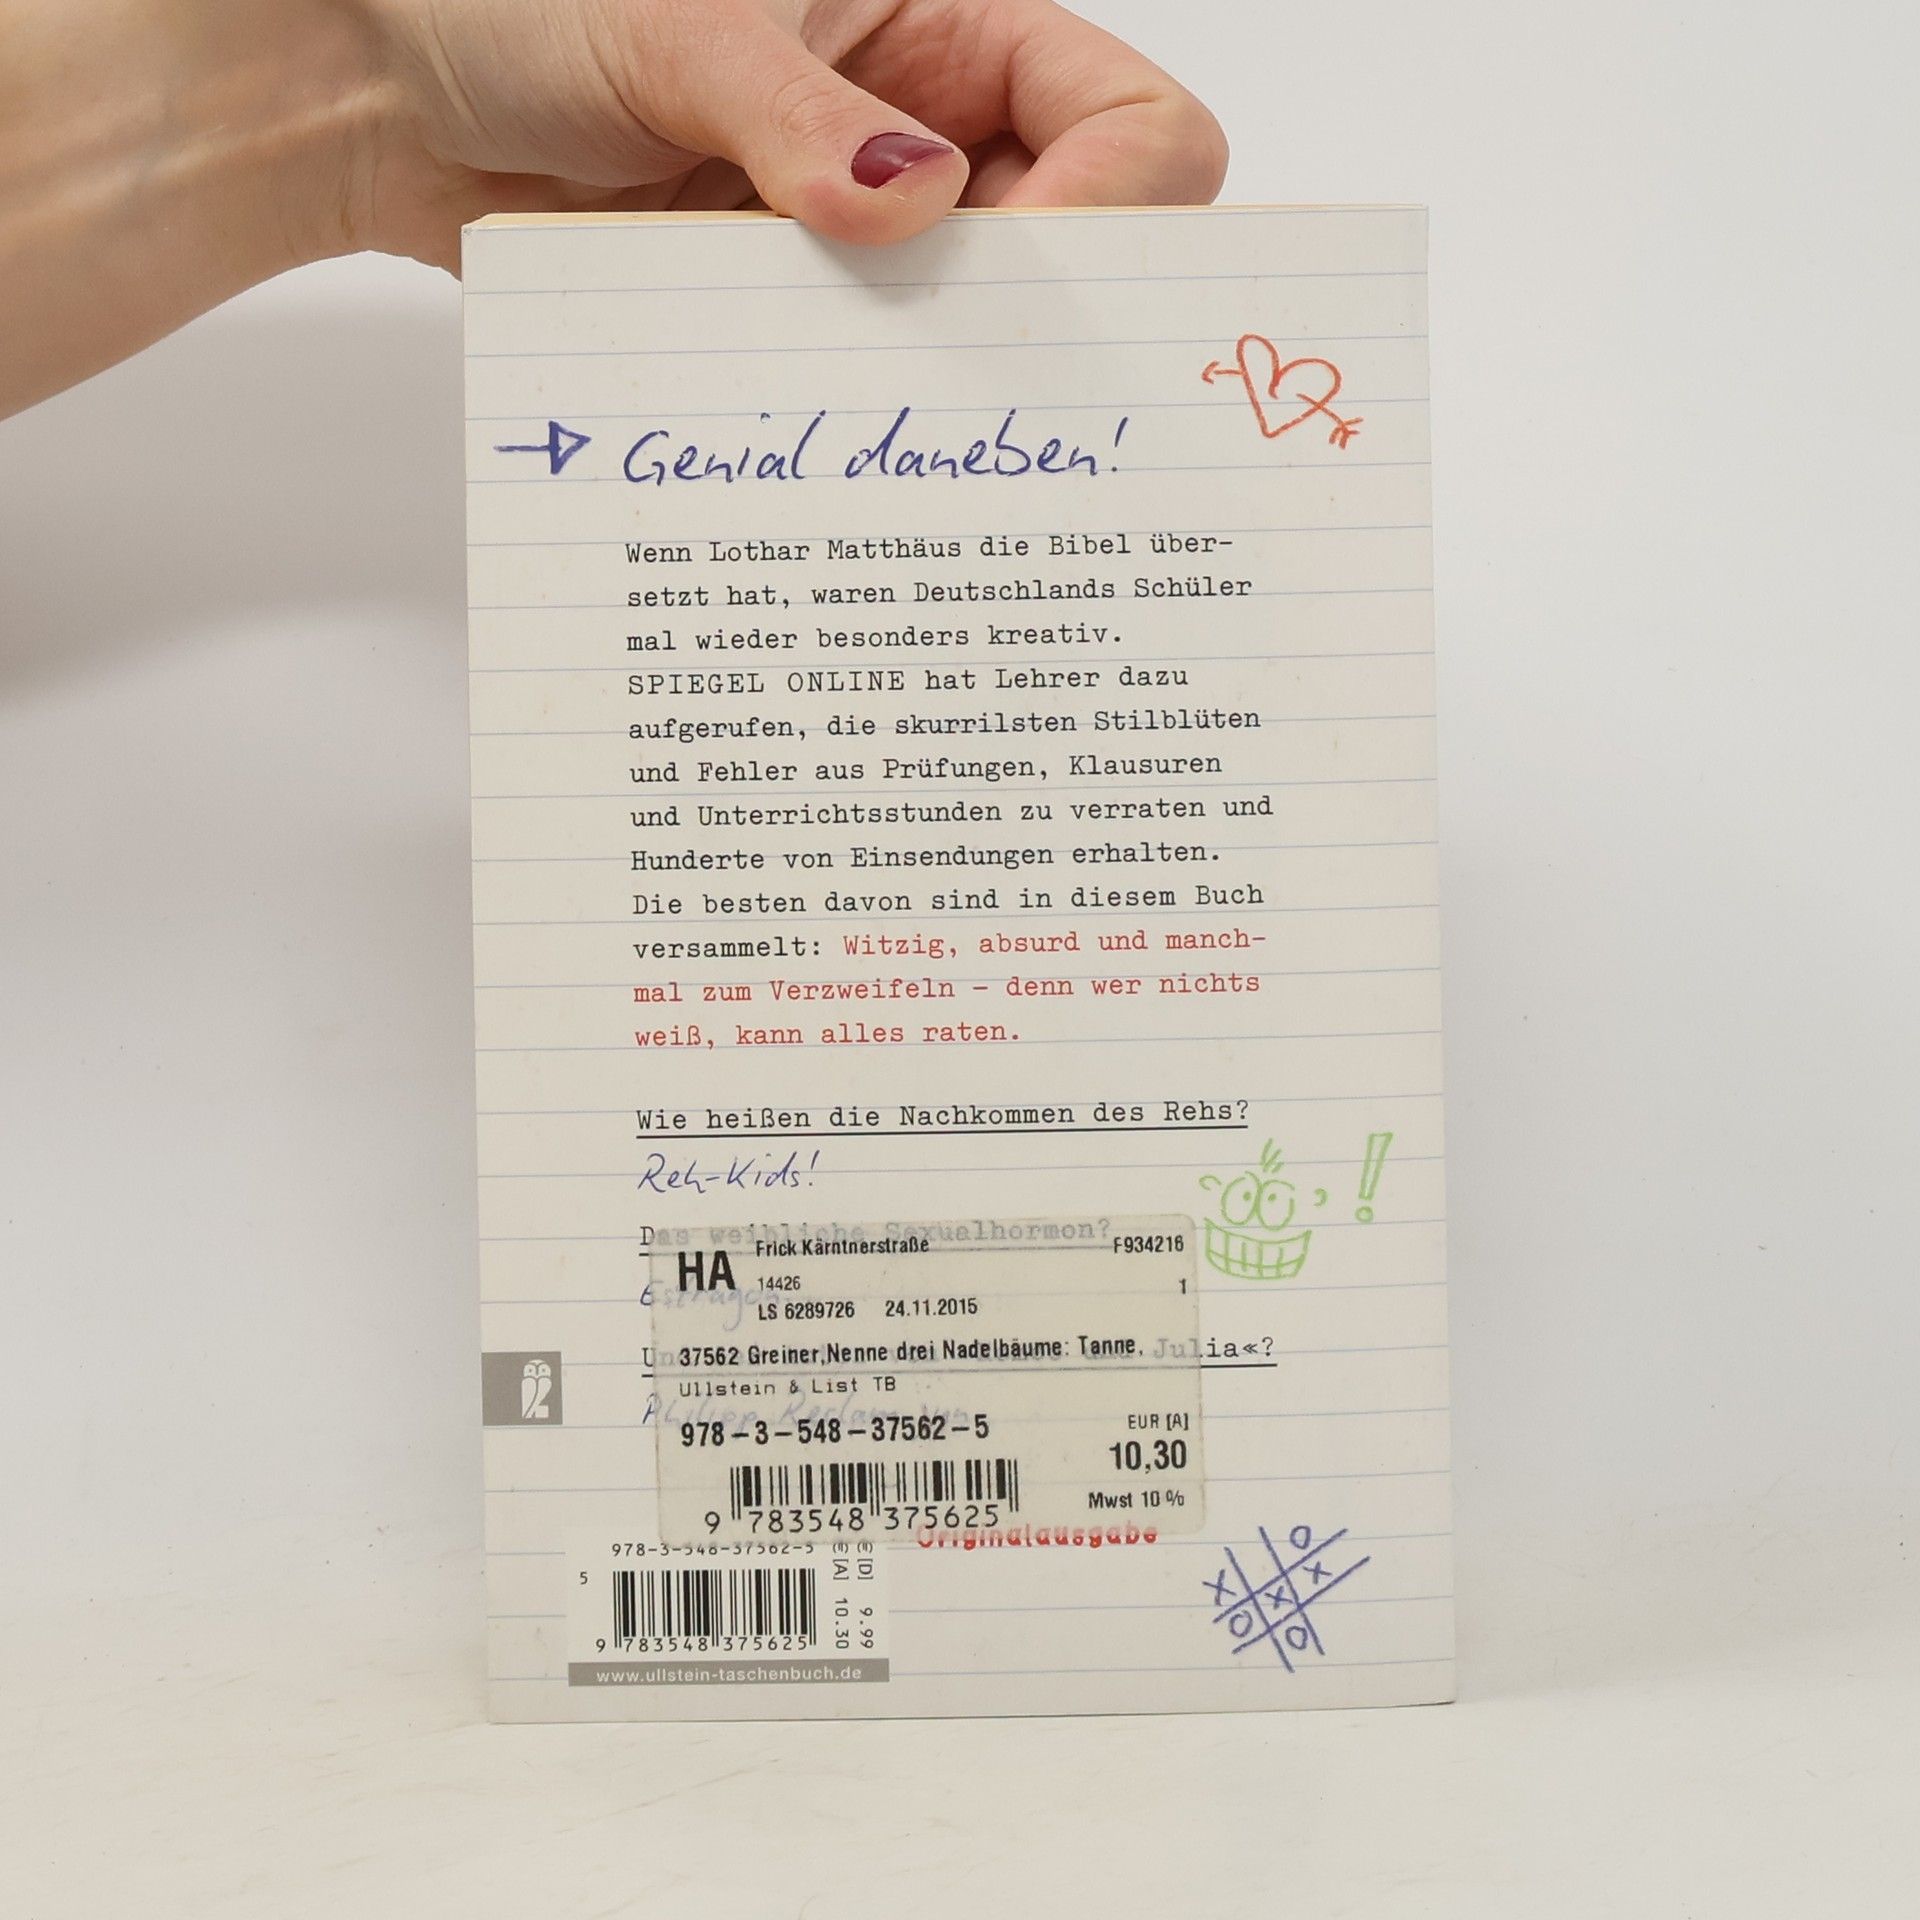 Genial daneben!
Wenn Lothar Matthäus die Bibel über-
setzt hat, waren Deutschlands Schüler
mal wieder besonders kreativ.
SPIEGEL ONLINE hat Lehrer dazu
aufgerufen, die skurrilsten Stilblüten
und Fehler aus Prüfungen, Klausuren
und Unterrichtsstunden zu verraten und
Hunderte von Einsendungen erhalten.
Die besten davon sind in diesem Buch
versammelt: Witzig, absurd und manch-
mal zum Verzweifeln – denn wer nichts
weiß, kann alles raten.
Wie heißen die Nachkommen des Rehs?
Reh-Kids!
!
Das weibliche Sexualhormon?
HA Frick Kärntnerstraße F934216
14426 1
Estragon.
LS 6289726 24.11.2015
Julia«?
37562 Greiner,Nenne drei Nadelbäume: Tanne,
Ullstein & List TB
Philipp Reclam
978-3-548-37562-5 EUR [A]
10,30
Mwst 10 %
9 783548 375625
Originalausgabe
978-3-548-37562-5
5
9 783548 375625
[A] 10.30
[D] 9.99
www.ullstein-taschenbuch.de
O
X X
X O
O